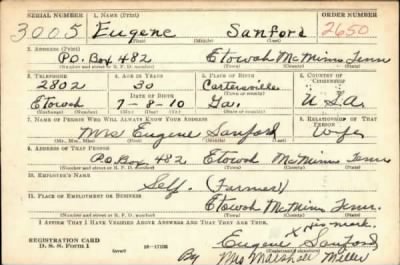 SERIAL NUMBER 1. NAME (Print) ORDER NUMBER
3005 Eugene Sanford 2650
(First) (Middle) (Last)
2. ADDRESS (Print)
P.O. Box 482 Etowah McMinn Tenn
(Number and street or R. F. D. number) (Town) (County) (State)
3. TELEPHONE 4. AGE IN YEARS 5. PLACE OF BIRTH 6. COUNTRY OF CITIZENSHIP
2802 30 Cartersville
DATE OF BIRTH (Town or county)
Etowah 7-8-10 Ga. U.S.A.
(Exchange) (Mo.) (Day) (Yr.) (State or country)
7. NAME OF PERSON WHO WILL ALWAYS KNOW YOUR ADDRESS 8. RELATIONSHIP OF THAT PERSON
Mrs Eugene Sanford Wife
(Mr., Mrs., Miss) (First) (Middle) (Last)
9. ADDRESS OF THAT PERSON
P.O. Box 482 Etowah McMinn Tenn
(Number and street or R. F. D. number) (Town) (County) (State)
10. EMPLOYER'S NAME
Self. (Farmer)
11. PLACE OF EMPLOYMENT OR BUSINESS
Etowah McMinn Tenn.
(Number and street or R. F. D. number) (Town) (County) (State)
I AFFIRM THAT I HAVE VERIFIED ABOVE ANSWERS AND THAT THEY ARE TRUE.
X His mark.
REGISTRATION CARD Eugene Sanford
D. S. S. FORM 1 (over) By Mrs Marshall Miller